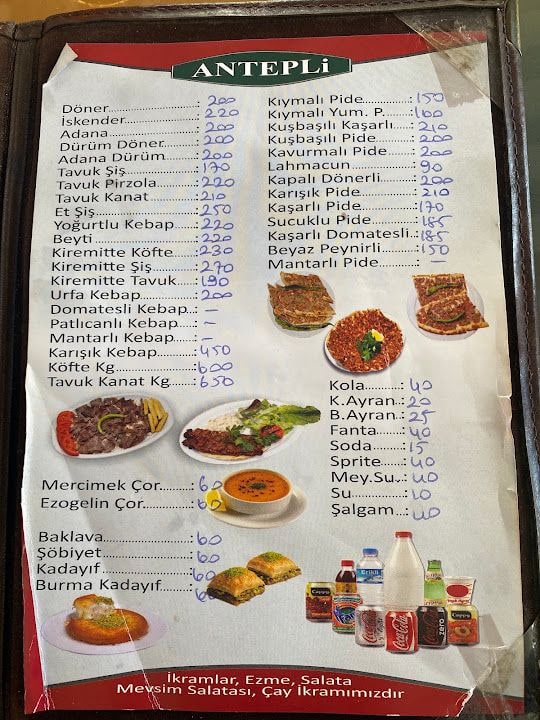 ANTEPLi
Döner..................: 200
İskender...............: 220
Adana..................: 200
Dürüm Döner.......: 200
Adana Dürüm.......: 200
Tavuk Şiş..............: 170
Tavuk Pirzola........: 220
Tavuk Kanat.........: 210
Et Şiş...................: 250
Yoğurtlu Kebap....: 220
Beyti....................: 220
Kiremitte Köfte....: 230
Kiremitte Şiş........: 270
Kiremitte Tavuk....: 190
Urfa Kebap...........: 200
Domatesli Kebap..: -
Patlıcanlı Kebap...: -
Mantarlı Kebap....: -
Karışık Kebap.......: 450
Köfte Kg...............: 600
Tavuk Kanat Kg....: 650
Mercimek Çor........: 60
Ezogelin Çor..........: 60
Baklava..................: 60
Şöbiyet..................: 60
Kadayıf..................: 60
Burma Kadayıf.......: 60
Kıymalı Pide..........: 150
Kıymalı Yum. P......: 160
Kuşbaşılı Kaşarlı....: 210
Kuşbaşılı Pide........: 200
Kavurmalı Pide......: 200
Lahmacun.............: 90
Kapalı Dönerli.......: 200
Karışık Pide...........: 210
Kaşarlı Pide...........: 170
Sucuklu Pide.........: 185
Kaşarlı Domatesli..: 185
Beyaz Peynirli.......: 150
Mantarlı Pide........: -
Kola.........: 40
K.Ayran...: 20
B.Ayran...: 25
Fanta.......: 40
Soda........: 15
Sprite......: 40
Mey.Su...: 40
Su............: 10
Şalgam...: 40
İkramlar, Ezme, Salata
Mevsim Salatası, Çay İkramımızdır
Cappy
Erikli
Coca-Cola
Coca-Cola
zero
Cappy